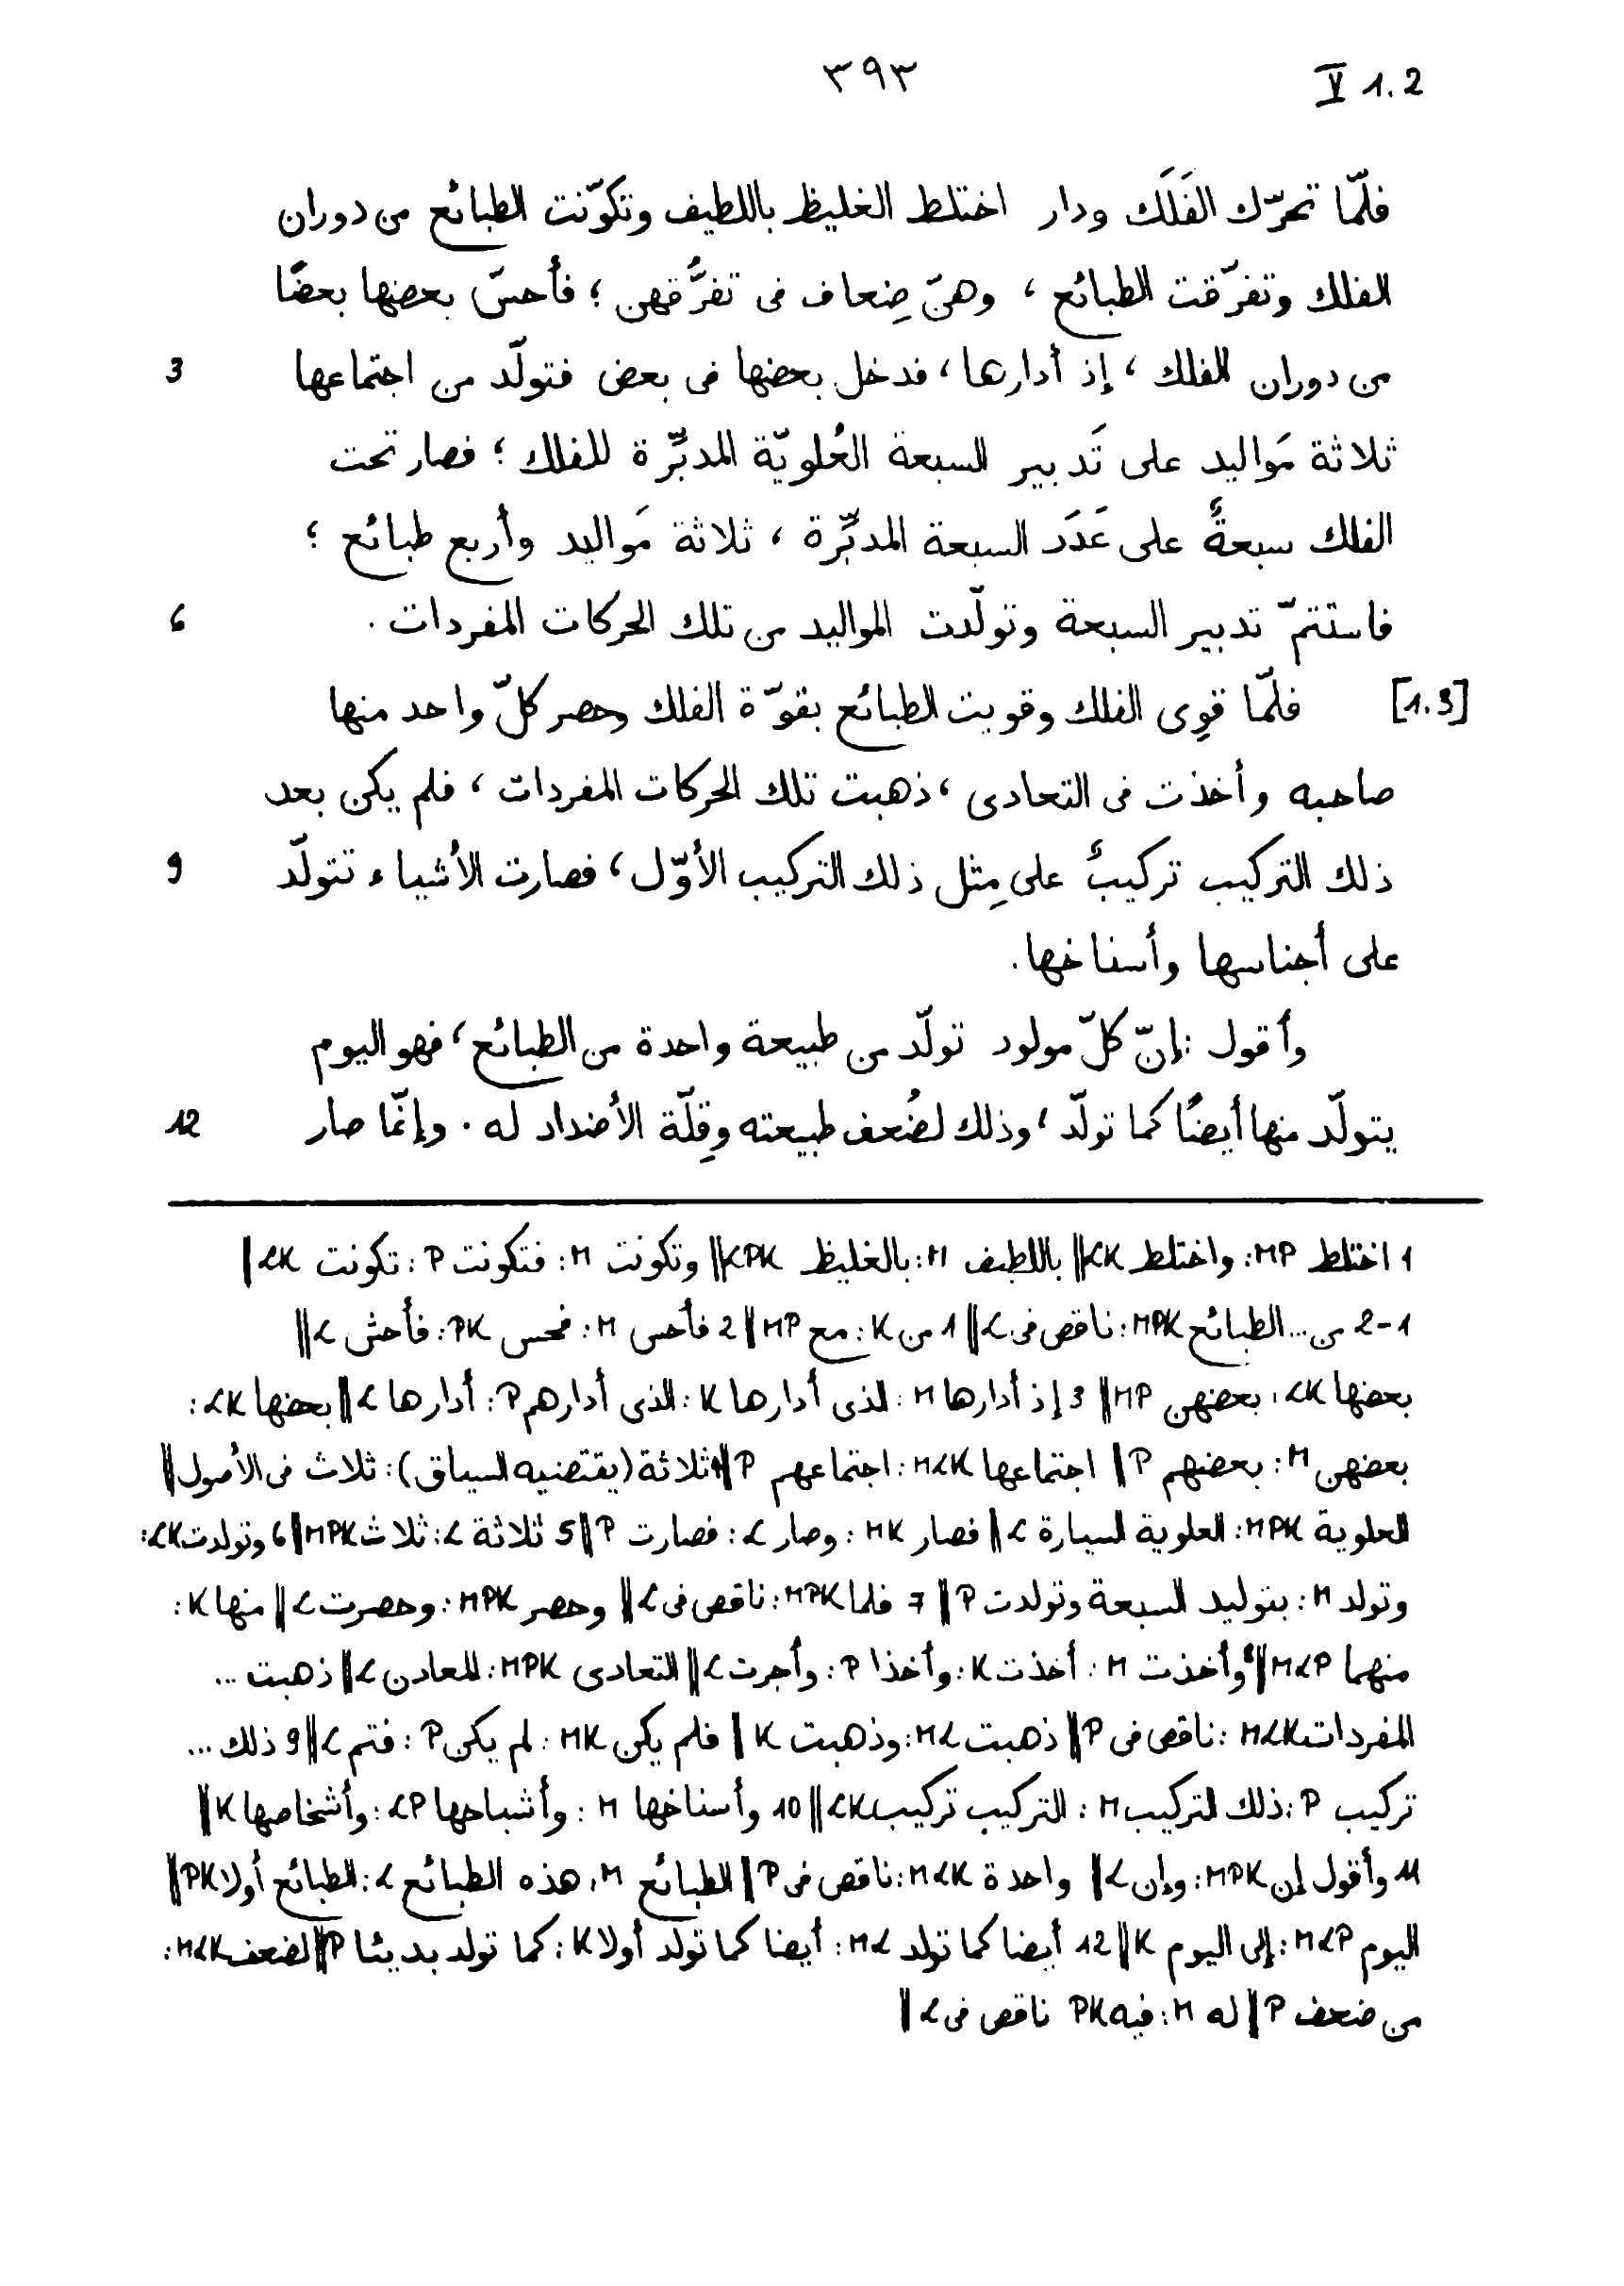 V 1.2
٣٩٣
فلمّا تحرّك الفَلَك ودار اختلط الغليظ باللطيف وتكوّنت الطبائع من دوران
الفلك وتفرّقت الطبائع ، وهيّ ضِعاف فى تفرُّقهن ؛ فأحسّ بعضها بعضًا
من دوران الفلك ، إذ أدارها ، فدخل بعضها فى بعض فتولّد من اجتماعها 3
ثلاثة مَواليد على تَدبير السبعة العُلويّة المدبِّرة للفلك ؛ فصار تحت
الفلك سبعةٌ على عَدَد السبعة المدبِّرة ، ثلاثة مَواليد وأربع طبائع ؛
فاستتمّ تدبير السبعة وتولّدت المواليد من تلك الحركات المفردات . 6
[1.3] فلمّا قوِى الفلك وقويت الطبائع بقوّة الفلك وحصر كلّ واحد منها
صاحبه وأخذت فى التعادى ، ذهبت تلك الحركات المفردات ، فلم يكن بعد
ذلك التركيب تركيبٌ على مِثل ذلك التركيب الأوّل ، فصارت الأشياء تتولّد 9
على أجناسها وأسناخها .
وأقول : إنّ كلّ مولود تولّد من طبيعة واحدة من الطبائع ، فهو اليوم
يتولّد منها أيضًا كما تولّد ، وذلك لضُعف طبيعته وقِلّة الأضداد له . وإنّما صار 12
1 اختلط MP: واختلط LK‖ باللطيف M: بالغليظ LPK‖ وتكونت M: فتكونت P: تكونت LK‖
1-2 من... الطبائع MPK: ناقص فى L‖ 1 من K: مع MP‖ 2 فأحس M: فحس PK: فأحش L‖
بعضها LK: بعضهن MP‖ 3 إذ أدارها M: الذى أدارها K: الذى أدارهم P: أدارها L‖ بعضها LK:
بعضهن M: بعضهم P‖ اجتماعها MLK: اجتماعهم P‖ 4 ثلاثة (يقتضيه السياق): ثلاث فى الأصول‖
العلوية MPK: العلوية السيارة L‖ فصار MK: وصار L: فصارت P‖ 5 ثلاثة L: ثلاث MPK‖ 6 وتولدت LK:
وتولد M: بتوليد السبعة وتولدت P‖ 7 فلما MPK: ناقص فى L‖ وحصر MPK: وحصرت L‖ منها K:
منهما MLP‖ 8 وأخذت M: أخذت K: وأخذا P: وأجرت L‖ التعادى MPK: المعادن L‖ ذهبت ...
المفردات MLK: ناقص فى P‖ ذهبت ML: وذهبت K‖ فلم يكن MK: لم يكن P: فتم L‖ 9 ذلك ...
تركيب P: ذلك التركيب M: التركيب تركيب LK‖ 10 وأسناخها M: وأشباحها LP: وأشخاصها K‖
11 وأقول إن MPK: وإن L‖ واحدة MLK: ناقص فى P‖ الطبائع M: هذه الطبائع L: الطبائع أولا PK‖
اليوم MLP: إلى اليوم K‖ 12 أيضا كما تولد ML: أيضا كما تولد أولا K: كما تولد بديئا P‖ لضعف MLK:
من ضعف P‖ له M: فيه PK ناقص فى L‖